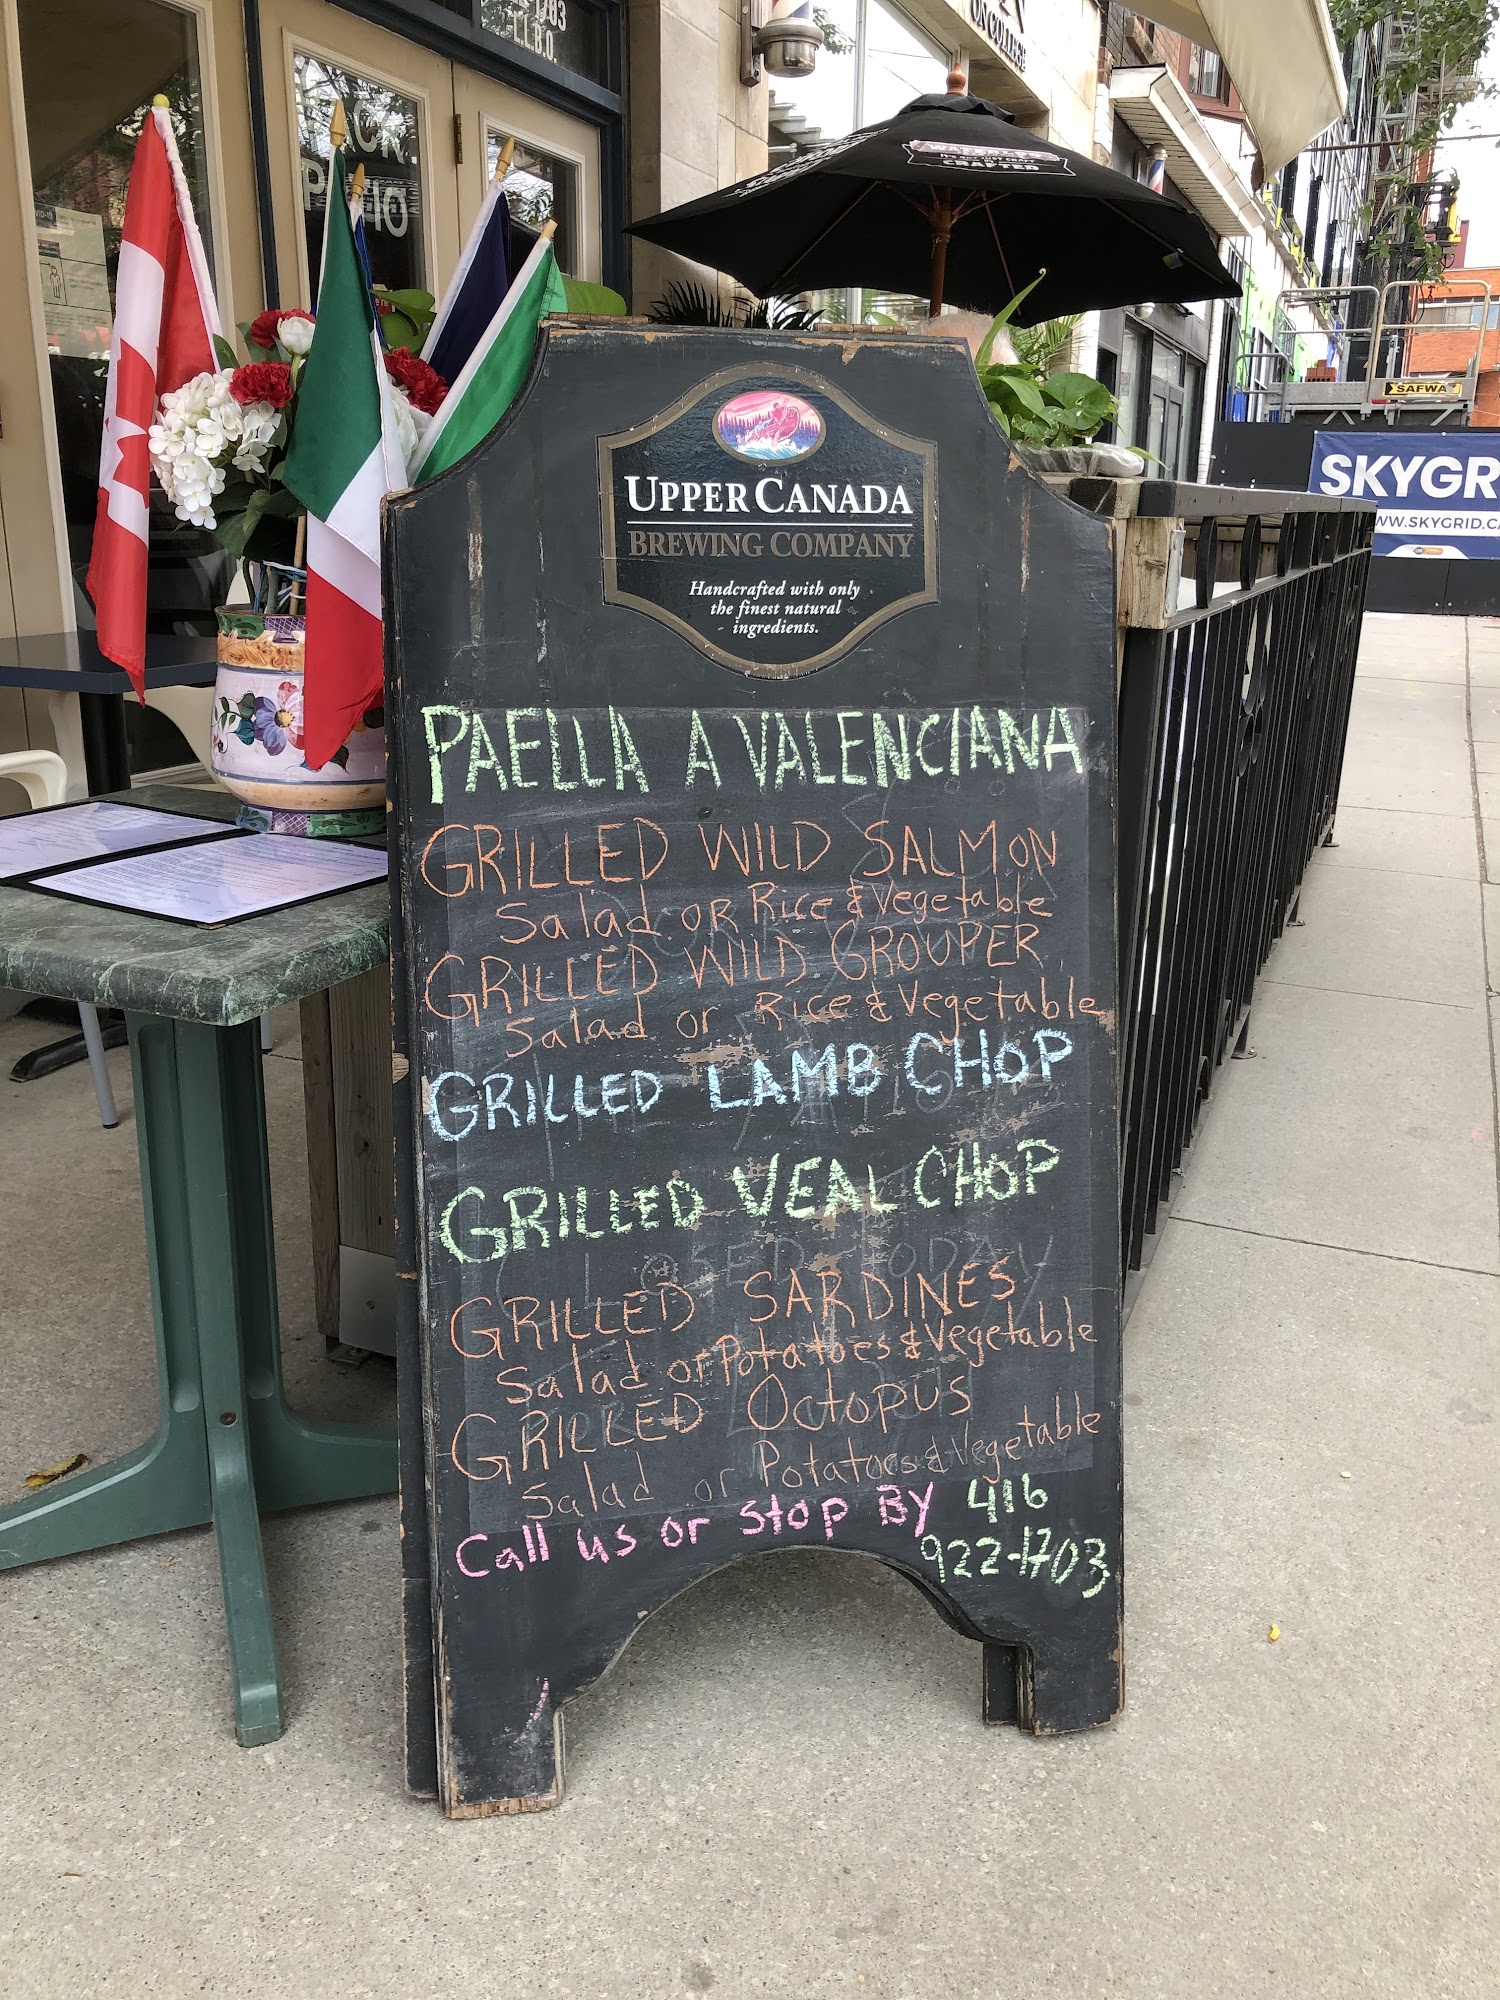 1703
L.L.B.O.
ON COLLEGE
PATIO
CRAFTED
UPPER CANADA
BREWING COMPANY
Handcrafted with only
the finest natural
ingredients.
SAFWAY
SKYGR
WW.SKYGRID.C
PAELLA A VALENCIANA
GRILLED WILD SALMON
Salad OR Rice & Vegetable
GRILLED WILD GROUPER
Salad or Rice & Vegetable
GRILLED LAMB CHOP
GRILLED VEAL CHOP
GRILLED SARDINES
Salad or Potatoes & Vegetable
GRILLED OCtOPUS
Salad or Potatoes & Vegetable
Call us or stop By 416
922-1703